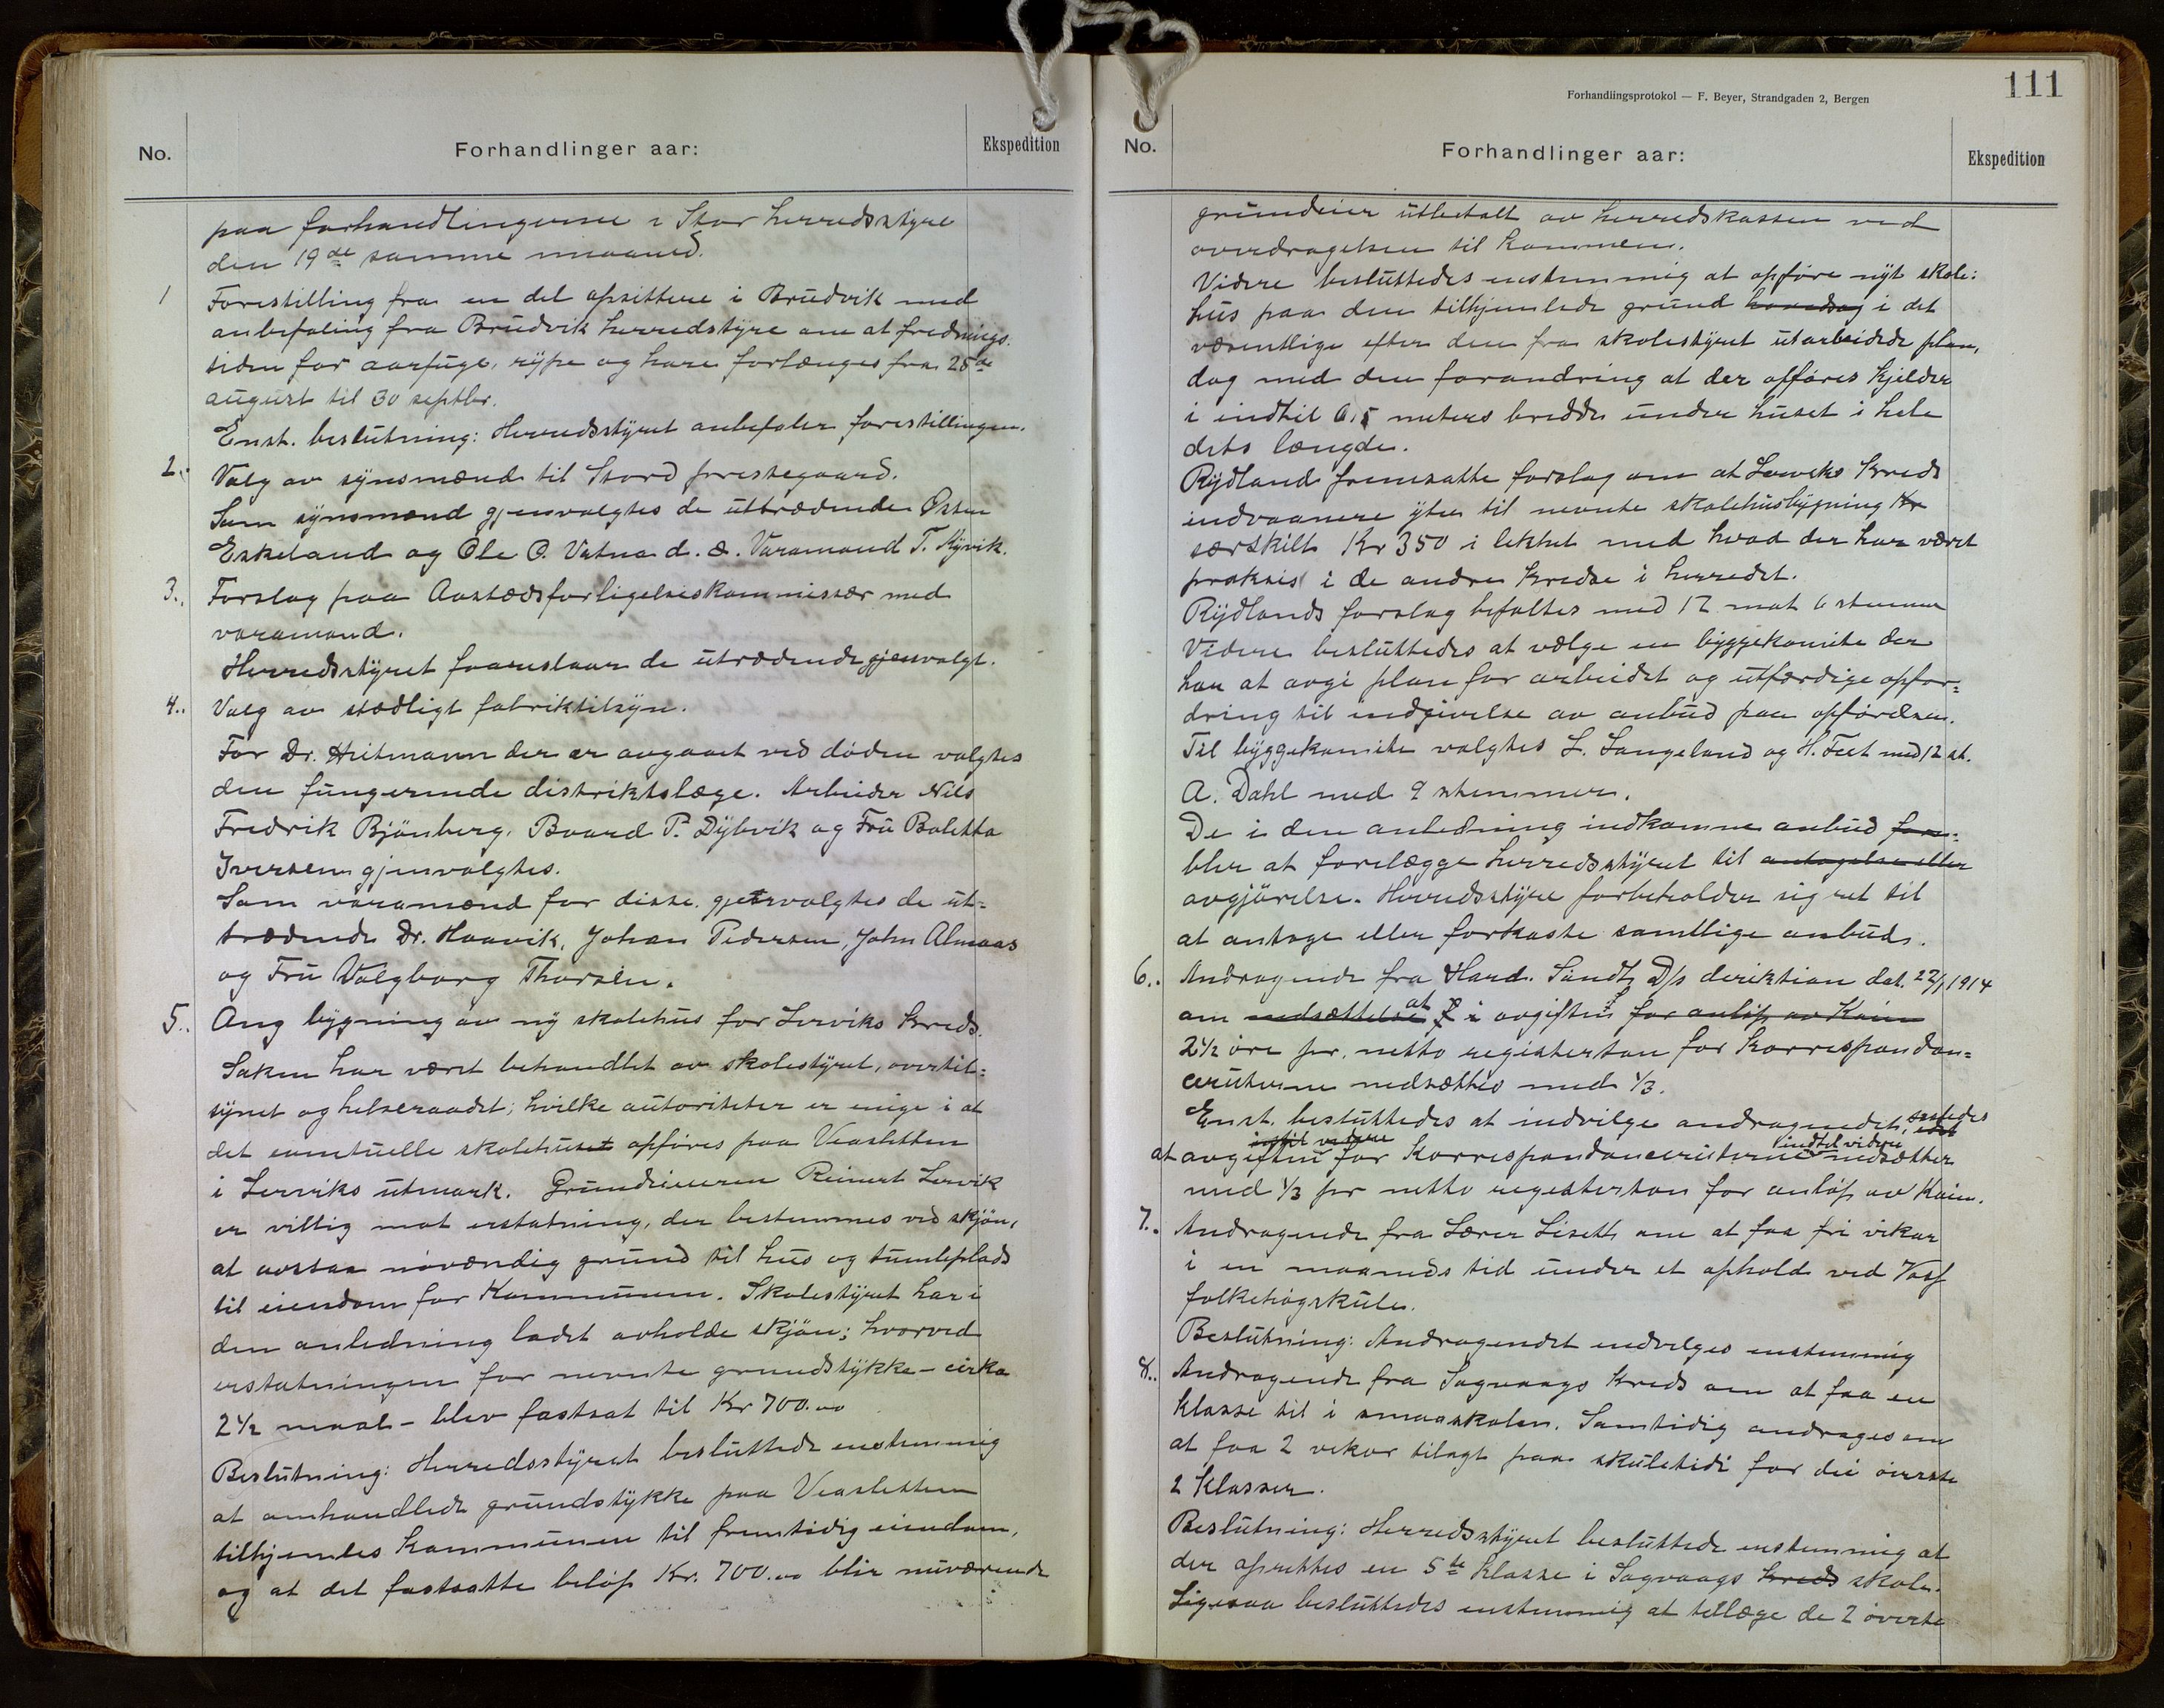 No. Forhandlinger aar: Ekspedition
paa forhandlingerne i Stor herredsstyre
den 19de samme maaned.
1 Forestilling fra en del opsittere i Brudvik med
anbefaling fra Brudvik herredstyre om at frednings.
tiden for aarfugl, rype og hare forlænges fra 25de
august til 30 septbr.
Enst. beslutning: Herredsstyret anbefaler forestillingen.
2. Valg av synsmænd til Stord prestegaard.
Som synsmænd gjenvalgtes de uttrædende Østen
Eskeland og Ole O. Vatna d. æ. Varamand T. Kyvik.
3. Forslag paa Aastedsforligelseskommissær med
varamand.
Herredsstyret foareslaar de utrædende gjenvalgt.
4. Valg av stedligt fabriktilsyn.
For Dr. Heitmann der er avgaaet ved døden valgtes
den fungerende distriktslæge. Arbeider Nils
Fredrik Bjönberg, Baard P. Dybvik og Fru Boletta
Iversen gjenvalgtes.
Som varamænd for disse gjenvalgtes de ut=
trædende Dr. Haavik, Johan Pedersen, John Almaas
og Fru Valgborg Thorsen.
5. Ang bygning av ny skolehus for Lerviks kreds.
Saken har været behandlet av skolestyret, overtil=
synet og helseraadet; hvilke autoriteter er enige i at
det eventuelle skolehuset opføres paa Veasletten
i Lerviks utmark. Grundeieren Reinert Lervik
er villig mot erstatning, der bestemmes ved skjön,
at avstaa növærdig grund til hus og tumleplads
til eiendom for Kommunen. Skolestyret har i
den anledning ladet avholde skjön; hvorved
erstatningen for nevnte grundstykke - cirka
2 1/2 maal - blev fastsat til Kr 700.00
Beslutning: Herredsstyret besluttede enstemmig
at omhandlede grundstykke paa Veasletten
tilhjemles Kommunen til fremtidig eiendom,
og at det fastsatte beløp Kr. 700.00 blir nuværende
Forhandlingsprotokol — F. Beyer, Strandgaden 2, Bergen
111
No. Forhandlinger aar: Ekspedition
grundeier utbetalt av herredskassen ved
overdragelsen til kommunen.
Videre besluttedes enstemmig at opføre nyt skole:
hus paa den tilhjemlede grund i det
væsentlige efter den fra skolestyret utarbeidede plan,
dog med den forandring at der opføres kjelder
i indtil 6,5 meters bredde under huset i hele
dets længde.
Rydland fremsatte forslag om at Lerviks kreds
indvaanere yter til nevnte skolehusbygning Kr
særskilt Kr 350 i likhet med hvad der har været
praksis i de andre kredse i herredet.
Rydlands forslag befaltes med 12 mot 6 stemmer
Videre besluttedes at vælge en byggekomite der
har at avgi plan for arbeidet og utfærdige opfor=
dring til indgivelse av anbud paa opförelsen.
Til byggekomite valgtes L. Langeland og H. Feet med 12 st.
A. Dahl med 9 stemmer.
De i den anledning indkomne anbud fore=
blir at forelægge herredsstyret til antagelse eller
avgjörelse. Herredsstyre forbeholder sig ret til
at antage eller forkaste samtlige anbud.
6. Andragende fra Hard. Sundh. D/s deriktion dat. 22/1 1914
om nedsættelse at i avgiften for anløp av Kaien
2 1/2 öre pr. netto registerton for korrespondan=
ceruterne nedsættes med 1/3.
Enst. besluttedes at indvilge andragendet, saaledes
indtil videre indtil videre
at avgiften for Korrespondanceruterne nedsættes
med 1/3 pr netto registerton for anløp av Kaien.
7. Andragende fra Lærer Liseth om at faa fri vikar
i en maaneds tid under et ophold ved Voss
folkehøgskule.
Beslutning: Andragendet indvilges enstemmig
8. Andragende fra Sagvaags kreds om at faa en
klasse til i smaaskolen. Samtidig andrages om
at faa 2 vekor tilagt paa skuletidi for dei øverste
2 klasser.
Beslutning: Herredsstyret besluttede enstemmig at
der oprettes en 5te klasse i Sagvaags kreds skole.
Ligesaa besluttedes enstemmig at tillæge de 2 øverste